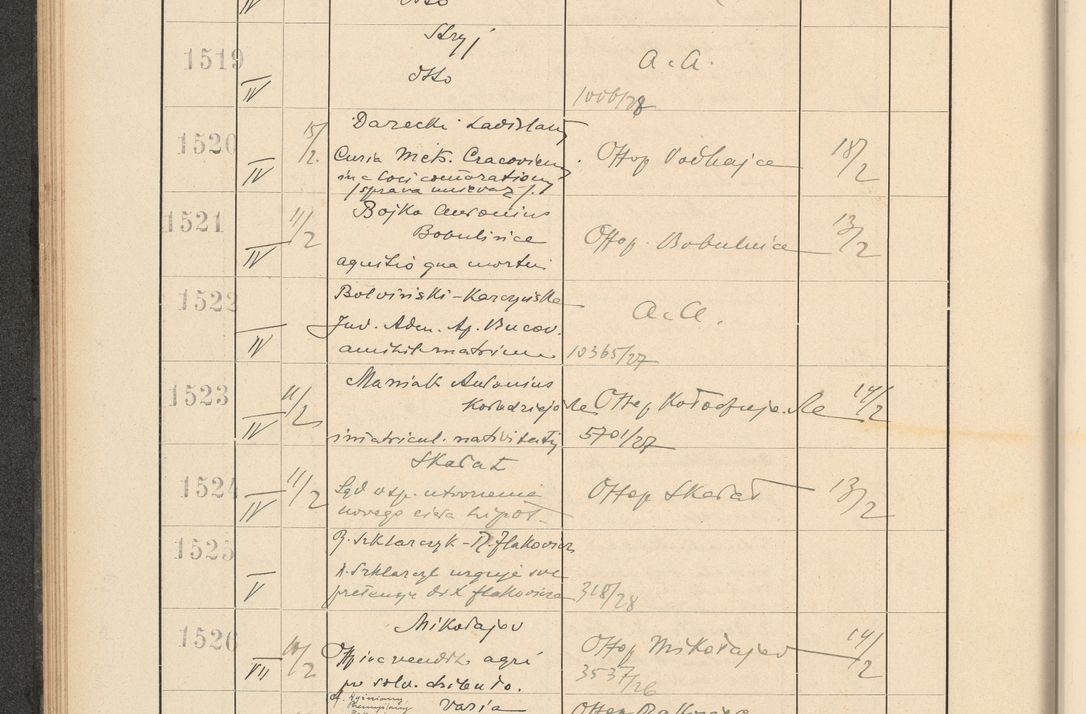 IV
Otto
1519
IV
Stryj
Otto
a.a.
1006/28
1520
IV
15/2.
Darecki Ladislaus
Curia Metr. Cracovien.
in c. loci comorationis
(sprawa
Offop. Podhajce
18/2
1521
IV
11/2
Bojko Antonius
Bobulińce
agnitio qua mortui
Offop. Bobulińce
13/2
1522
IV
Bolviński-Karczyńska
Jud. Adm. Ap. Bucov.
annihil. matrimon
a.a.
10365/27
1523
IV
11/2
Maniak Antonius
Kołodziejówka
immatricul. nativitatis
Offop. Kołodziejówka
5701/27
14/2
1524
IV
11/2
Skałat
Sąd w sp. utworzenia
nowego ciała hipot.
Offop Skałat
13/2
1525
V
R. Szklarczyk - X. Flakowicz
R. Szklarczyk urguje swe
pretensje do X Flakowicza
318/28
1526
VII
10/2
Mikołajov
Off in c. vendit. agri
pro solv. debito.
Offop Mikołajov
3537/26
14/2
Varia